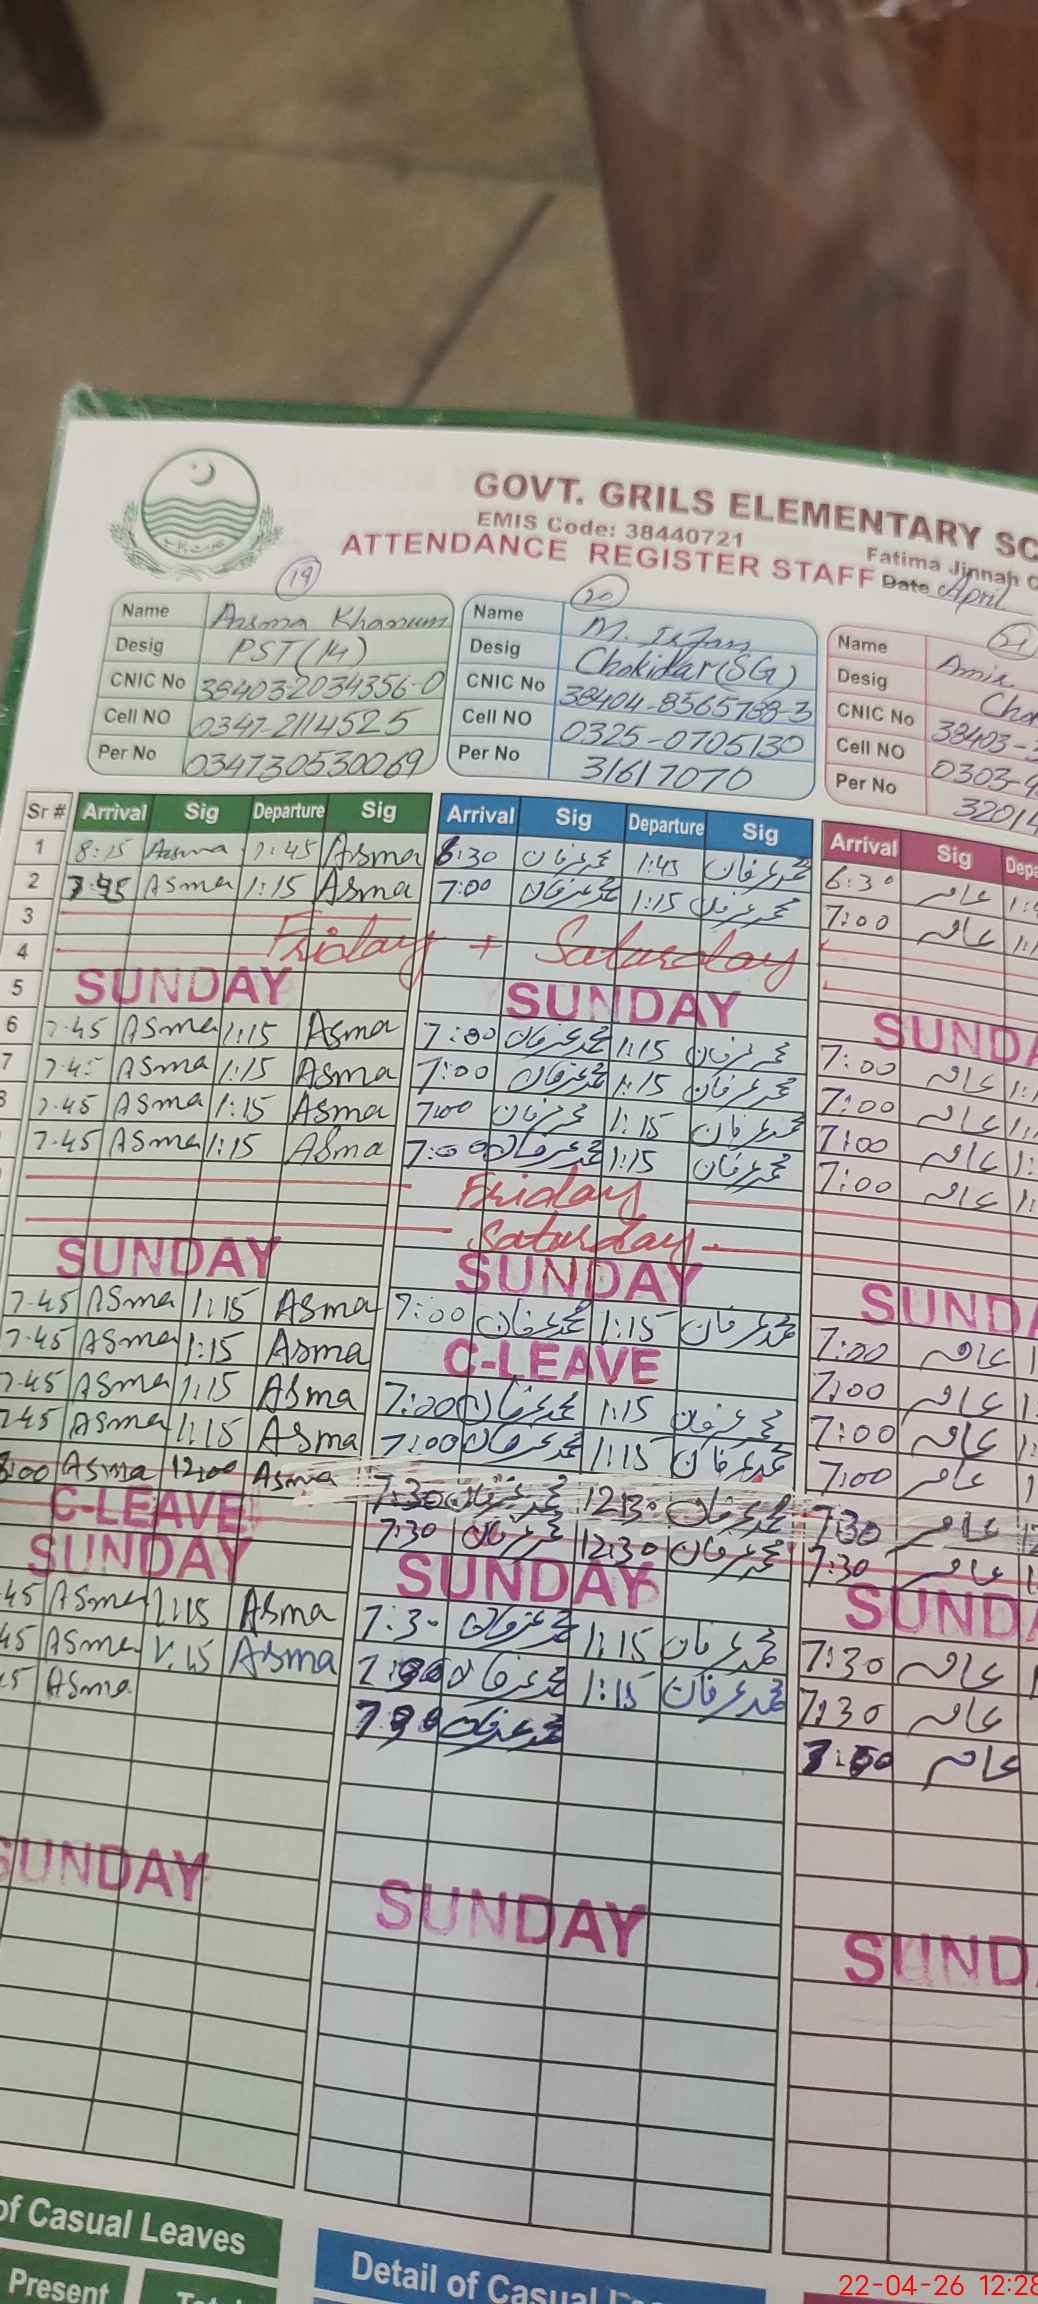 GOVT. GRILS ELEMENTARY SC
EMIS Code: 38440721
Fatima Jinnah C
ATTENDANCE REGISTER STAFF Date April
19 20 21
Name Asma Khanum Name M. Irfan Name Amir
Desig PST (14) Desig Chokidar (SG) Desig Cho
CNIC No 384032034356-0 CNIC No 38404-8565788-3 CNIC No 38403-
Cell NO 0347-2114525 Cell NO 0325-0705130 Cell NO 0303-9
Per No 034730530069 Per No 31617070 Per No 3201
Sr # Arrival Sig Departure Sig Arrival Sig Departure Sig Arrival Sig Depa
1 8:15 Asma 1:45 Asma 6:30 محمد عرفان 1:45 محمد عرفان 6:30 عامر
2 7:45 Asma 1:15 Asma 7:00 محمد عرفان 1:15 محمد عرفان 7:00 عامر
3
4 Friday + Saturday
5 SUNDAY SUNDAY SUNDA
6 7.45 Asma 1:15 Asma 7:00 محمد عرفان 1:15 محمد عرفان 7:00 عامر
7 7.45 Asma 1:15 Asma 7:00 محمد عرفان 1:15 محمد عرفان 7:00 عامر
7.45 Asma 1:15 Asma 7:00 محمد عرفان 1:15 محمد عرفان 7:00 عامر
7.45 Asma 1:15 Asma 7:00 محمد عرفان 1:15 محمد عرفان 7:00 عامر
Friday
Saturday
SUNDAY SUNDAY SUNDA
7.45 Asma 1:15 Asma 7:00 محمد عرفان 1:15 محمد عرفان 7:00 عامر
7.45 Asma 1:15 Asma C-LEAVE 7:00 عامر
7.45 Asma 1:15 Asma 7:00 محمد عرفان 1:15 محمد عرفان 7:00 عامر
7.45 Asma 1:15 Asma 7:00 محمد عرفان 1:15 محمد عرفان 7:00 عامر
8:00 Asma 12:00 Asma 7:30 محمد عرفان 12:30 محمد عرفان 7:30 عامر
C-LEAVE 7:30 محمد عرفان 12:30 محمد عرفان 7:30 عامر
SUNDAY SUNDAY SUNDA
45 Asma 1:15 Asma 7:30 محمد عرفان 1:15 محمد عرفان 7:30 عامر
45 Asma 1.15 Asma محمد عرفان 1:15 محمد عرفان 7:30 عامر
45 Asma محمد عرفان عامر
SUNDAY SUNDAY SUND
of Casual Leaves Detail of Casual
Present
22-04-26 12:28